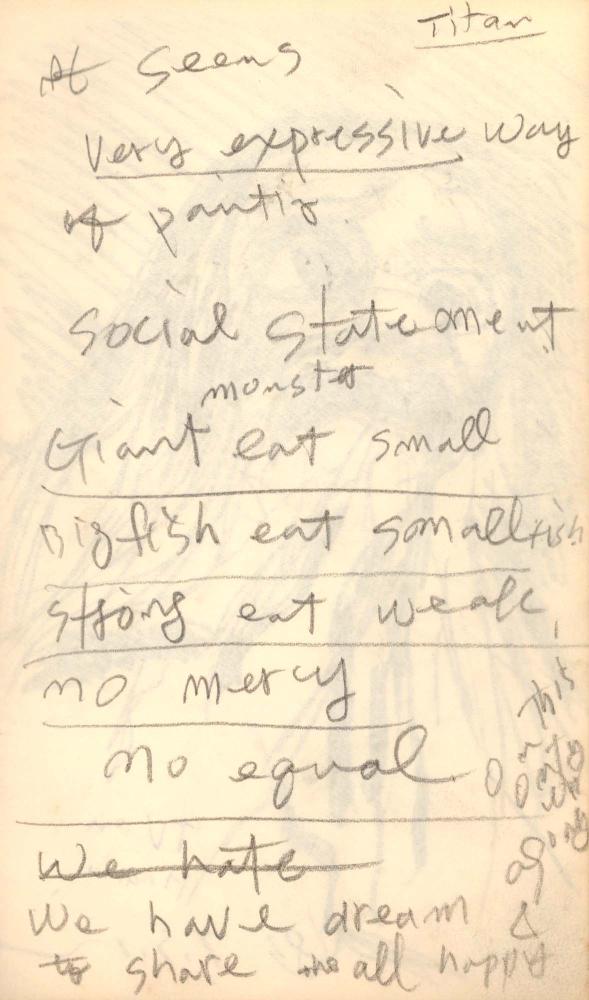 Titan
It seems
very expressive way
of paintig
social stateoment
monster
Giant eat small
Big fish eat somall fish
strong eat weak
no mercy
no equal
on this
We hate
We have dream &
to share the all happy